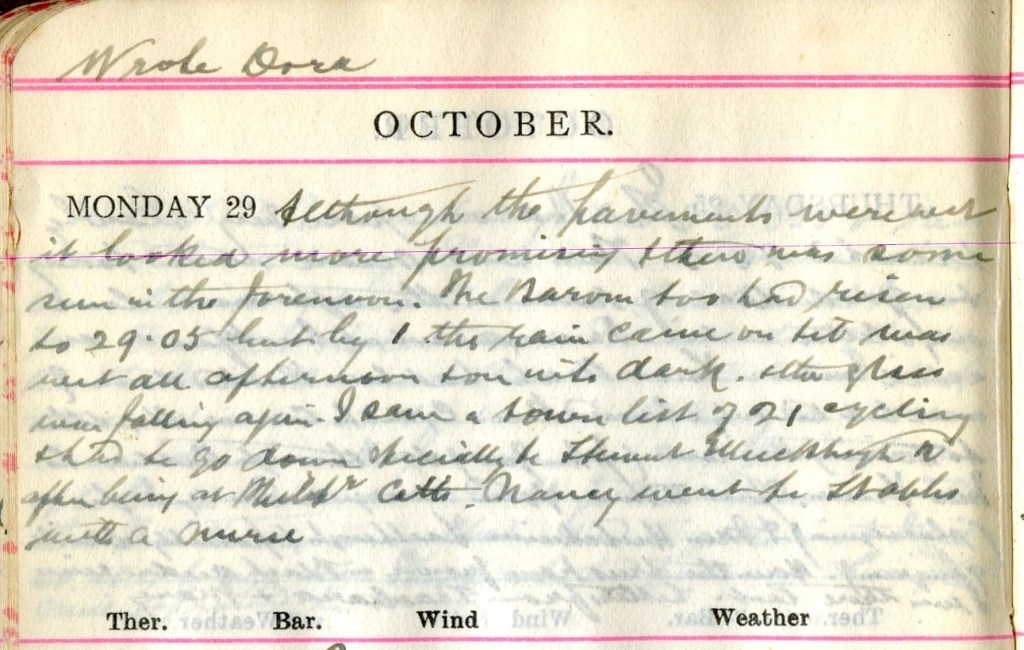 Wrote Dora
OCTOBER.
MONDAY 29 Although the pavements were wet
it looked more promising & there was some
sun in the forenoon. The Barom too had risen
to 29.05 but by 1 the rain came on & it was
wet all afternoon & on into dark. & the glass
was falling again. I saw a town list of 21 cycling
& had to go down specially to Stewart
after being at Cotts. Nancy went to Stobbs
with a nurse
Ther. Bar. Wind Weather